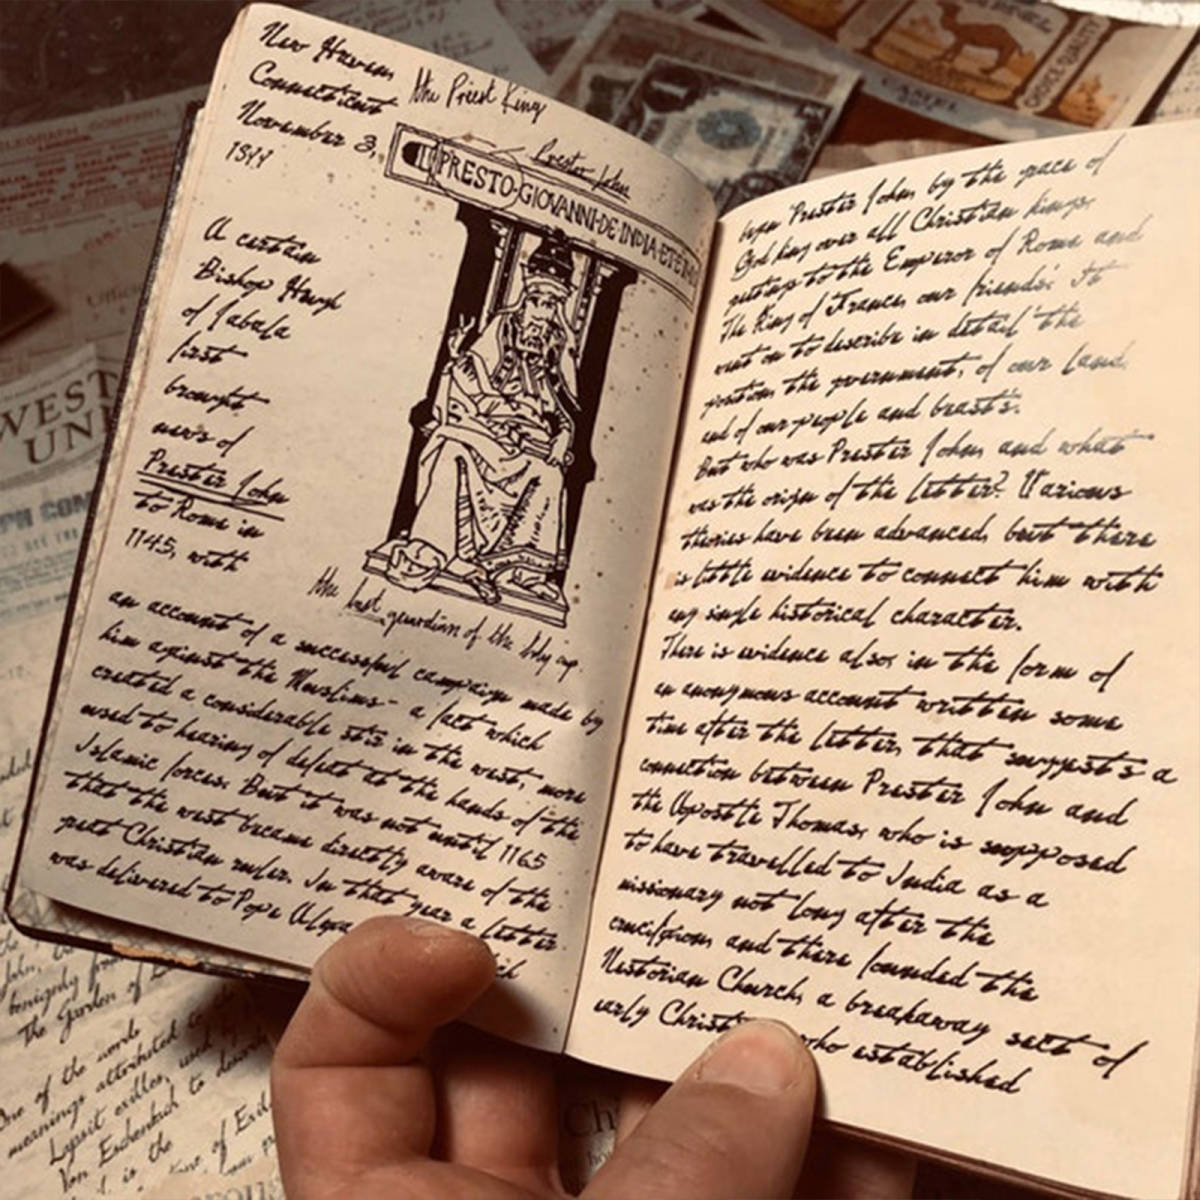 New Haven
Connecticut
November 3,
1944
the Priest King
Prester John
PRESTO·GIOVANNI·DE·INDIA·ET·ET
A certain
Bishop Hugh
of Jabala
first
brought
news of
Prester John
to Rome in
1145, with
the last guardian of the holy cup.
an account of a successful campaign made by
him against the Muslims - a fact which
created a considerable stir in the west, more
used to hearing of defeat at the hands of the
Islamic forces. But it was not until 1165
that the west became directly aware of the
great Christian ruler. In that year a letter
was delivered to Pope
began 'Prester John, by the grace of
God king over all Christian kings,
greetings to the Emperor of Rome and
The King of France, our friends.' It
went on to describe in detail 'the
position, the government, of our land,
and of our people and beasts'.
But who was Prester John, and what
was the origin of the letter? Various
theories have been advanced, but there
is little evidence to connect him with
any single historical character.
There is evidence also, in the form of
an anonymous account written some
time after the letter, that suggests a
connection between Prester John and
the Apostle Thomas, who is supposed
to have travelled to India as a
missionary not long after the
crucifixion, and there founded the
Nestorian Church, a breakaway sect of
early who established
CAMEL
CHOICE QUALITY
WEST
UNI
benignly
The Garden of
One of the words
meanings attributed to
Lapsit exilles, used by
Von Eschenbach to describe
it is the